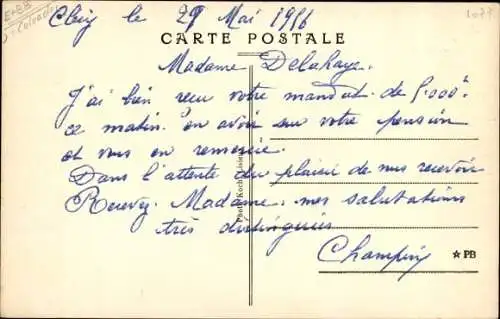 le 29 Mai 1956
CARTE POSTALE
Madame Delahaye.
J'ai bien reçu votre mandat de 5.000 f
ce matin en avoir sur votre pension
et vous en remercie.
Dans l'attente du plaisir de nous recevoir
Recevez Madame mes salutations
très distinguées
Champin
PB